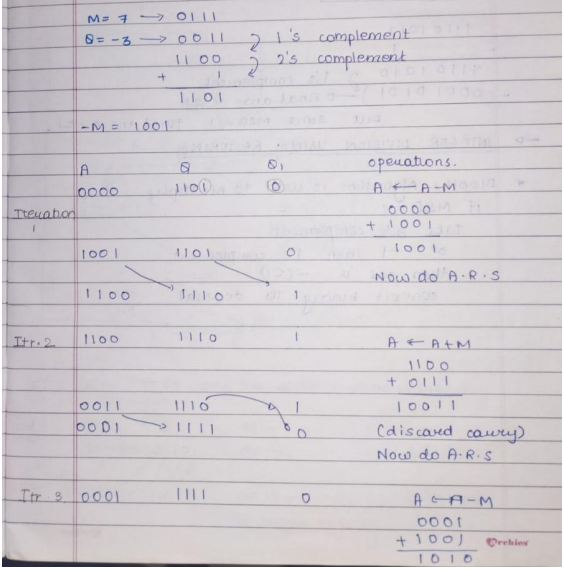 M = 7 → 0111
Q = -3 → 0011 1's complement
1100 2's complement
+ 1
1101
-M = 1001
A Q Q1 operations.
0000 1101 0 A ← A-M
Iteuation 1 0000
+ 1001
1001 1101 0 1001
Now do A.R.S
1100 1110 1
Itr.2 1100 1110 1 A ← A+M
1100
+ 0111
0011 1110 1 10011
0001 1111 0 (discard caury)
Now do A.R.S
Itr 3 0001 1111 0 A ← A-M
0001
+ 1001
1010